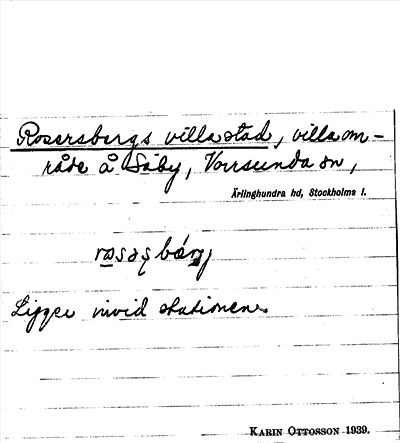 Rosersbergs villastad, villaom-
råde å Säby, Norrsunda sn,
Ärlinghundra hd, Stockholms l.
Ligger invid stationen.
KARIN OTTOSSON 1939.